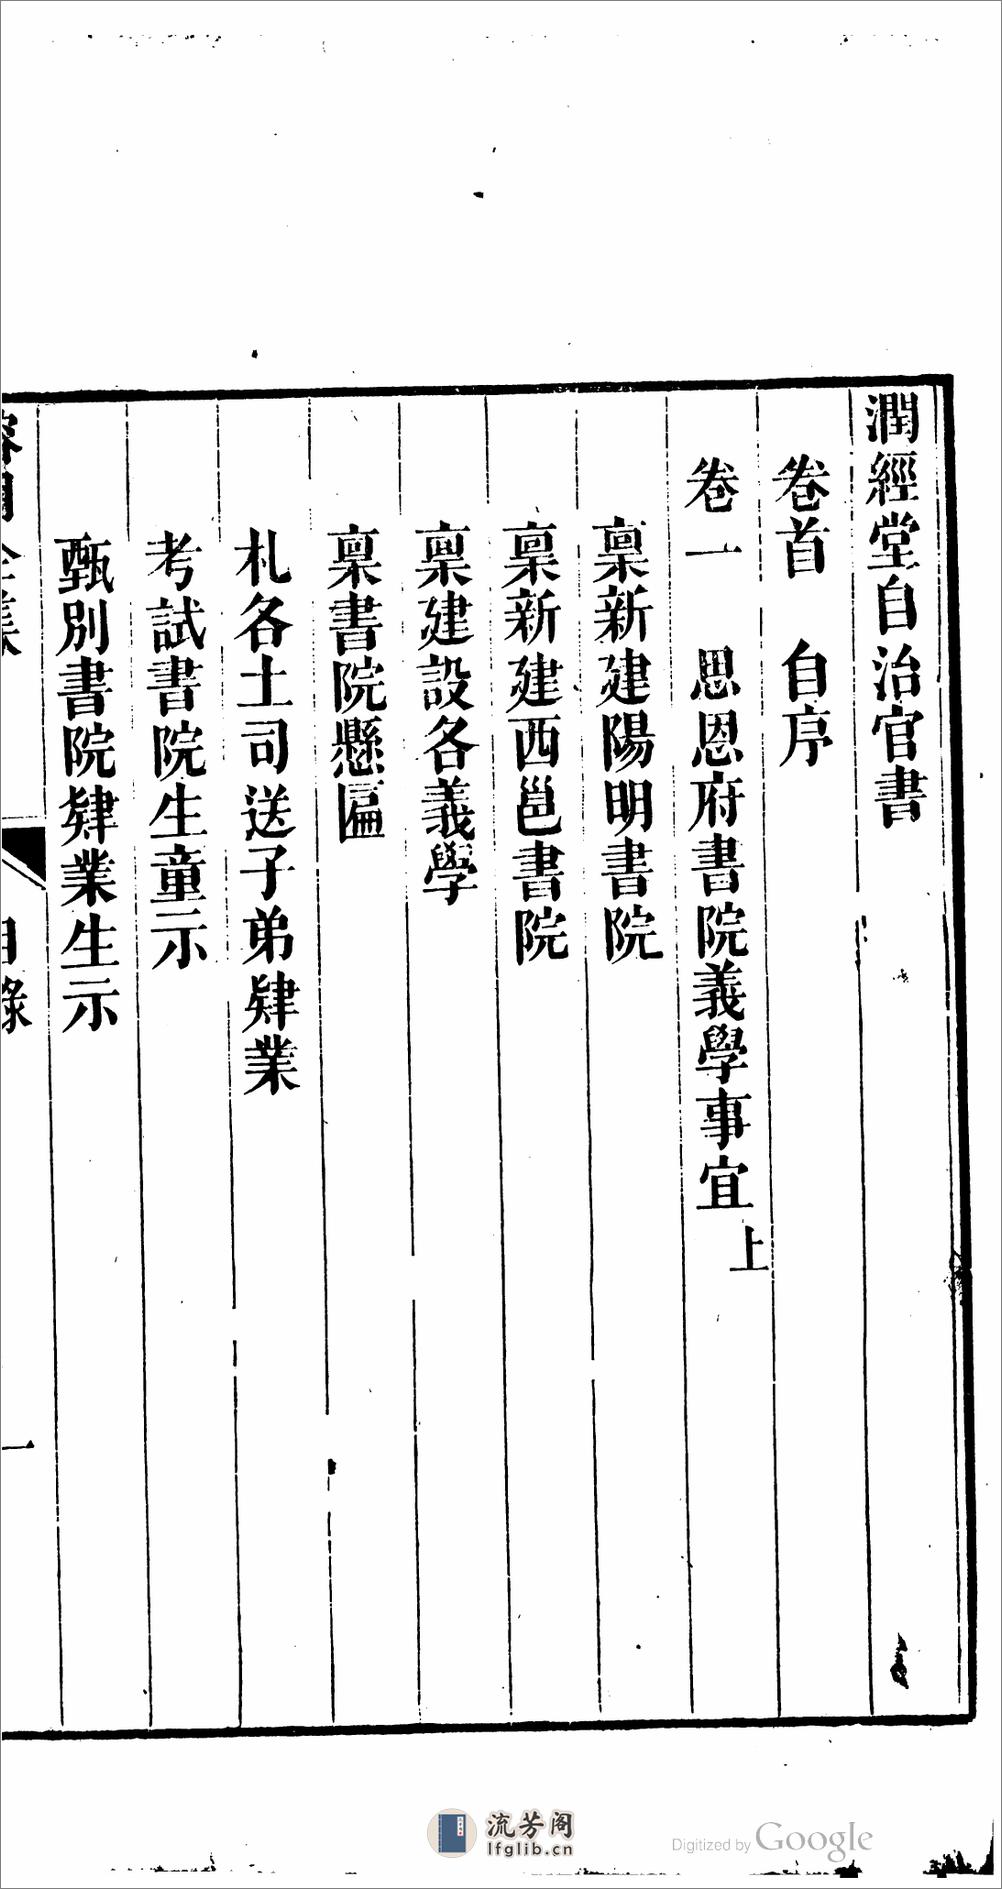 潤經堂自治官書
卷首　自序
卷一　思恩府書院義學事宜上
稟新建陽明書院
稟新建西邕書院
稟建設各義學
稟書院懸匾
札各土司送子弟肄業
考試書院生童示
甄別書院肄業生示
目錄
一
流芳阁
lfglib.cn
Digitized by Google